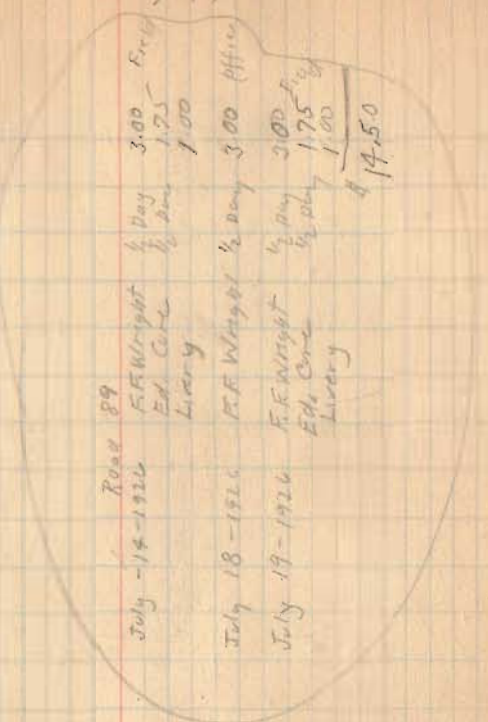 Road 89
July - 14 - 1926 F.F. Wright 1/2 Day 3.00
Ed. Cone 1/2 Day 1.75
Livery 1.00
July 18 - 1926 F.F. Wright 1/2 Day 3.00 Office
July 19 - 1926 F.F. Wright 1/2 Day 3.00
Ed. Cone 1/2 Day 1.75
Livery 1.00
$ 14.50